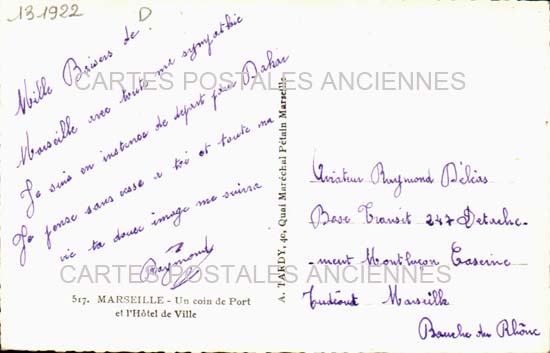 13.1922 D
Mille Baisers de
Marseille avec toute ma sympathie
Je suis en instance de départ pour Dakar
Je pense sans cesse a toi et toute ma
vie ta douce image me suivra
Raymond
CARTES POSTALES ANCIENNES
CARTES POSTALES ANCIENNES
517. MARSEILLE - Un coin de Port
et l'Hôtel de Ville
A. TARDY, 40, Quai Maréchal Pétain Marseille
Aviateur Raymond Délias
Base Transit 247 Détache-
-ment Montluçon Caserne
Marseille
Bouche du Rhône